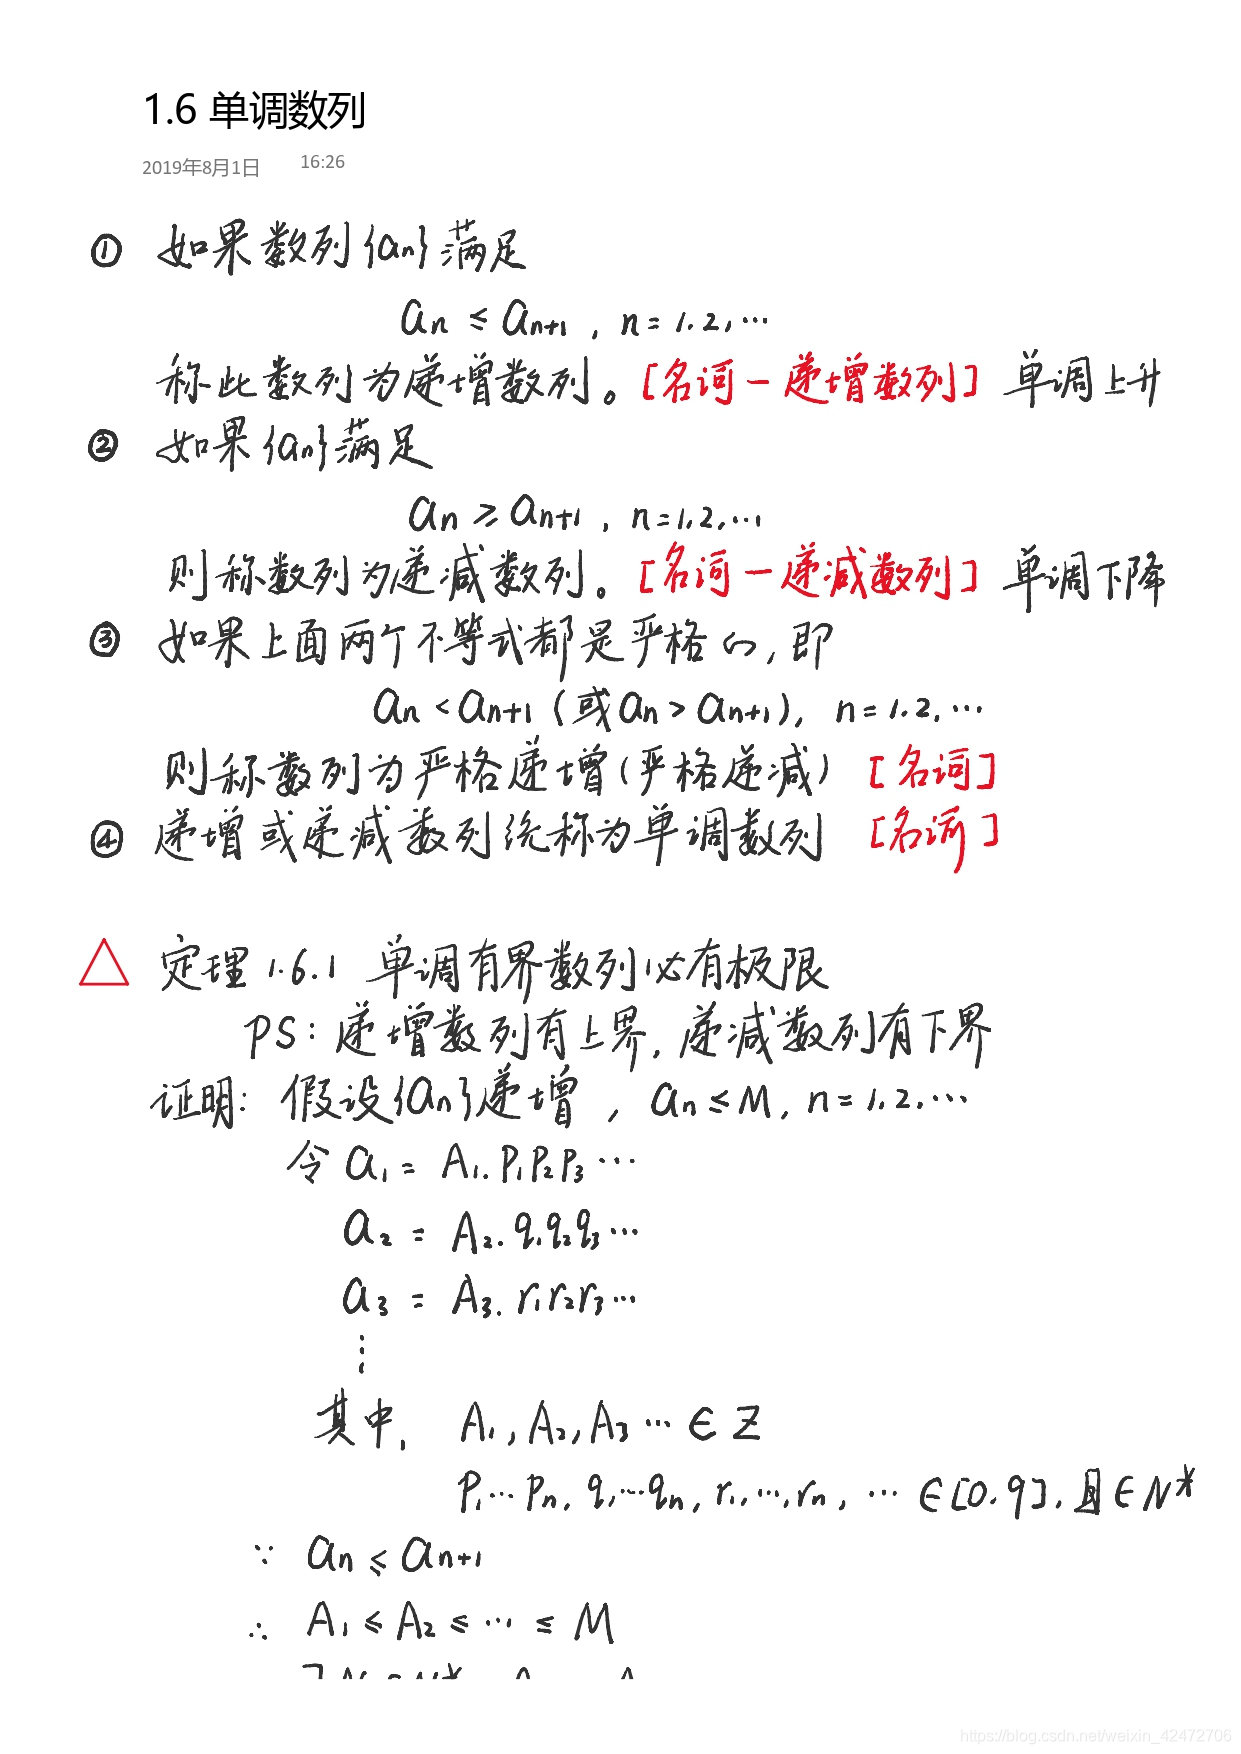 1.6 单调数列
2019年8月1日 16:26
① 如果数列{an}满足
an ≤ an+1 , n = 1.2,…
称此数列为递增数列。[名词－递增数列] 单调上升
② 如果{an}满足
an ≥ an+1 , n=1,2,…
则称数列为递减数列。[名词－递减数列] 单调下降
③ 如果上面两个不等式都是严格的,即
an < an+1 (或an > an+1), n = 1.2,…
则称数列为严格递增(严格递减) [名词]
④ 递增或递减数列统称为单调数列 [名词]
△ 定理 1.6.1 单调有界数列必有极限
PS: 递增数列有上界, 递减数列有下界
证明: 假设{an}递增 , an ≤ M, n = 1.2.…
令 a1 = A1. P1P2P3 …
a2 = A2. q1q2q3 …
a3 = A3. r1r2r3 …
⋮
其中, A1, A2, A3 … ∈ Z
P1…Pn, q1…qn, r1,…,rn, … ∈[0.9], 且∈N*
∵ an ≤ an+1
∴ A1 ≤ A2 ≤ … ≤ M
https://blog.csdn.net/weixin_42472706